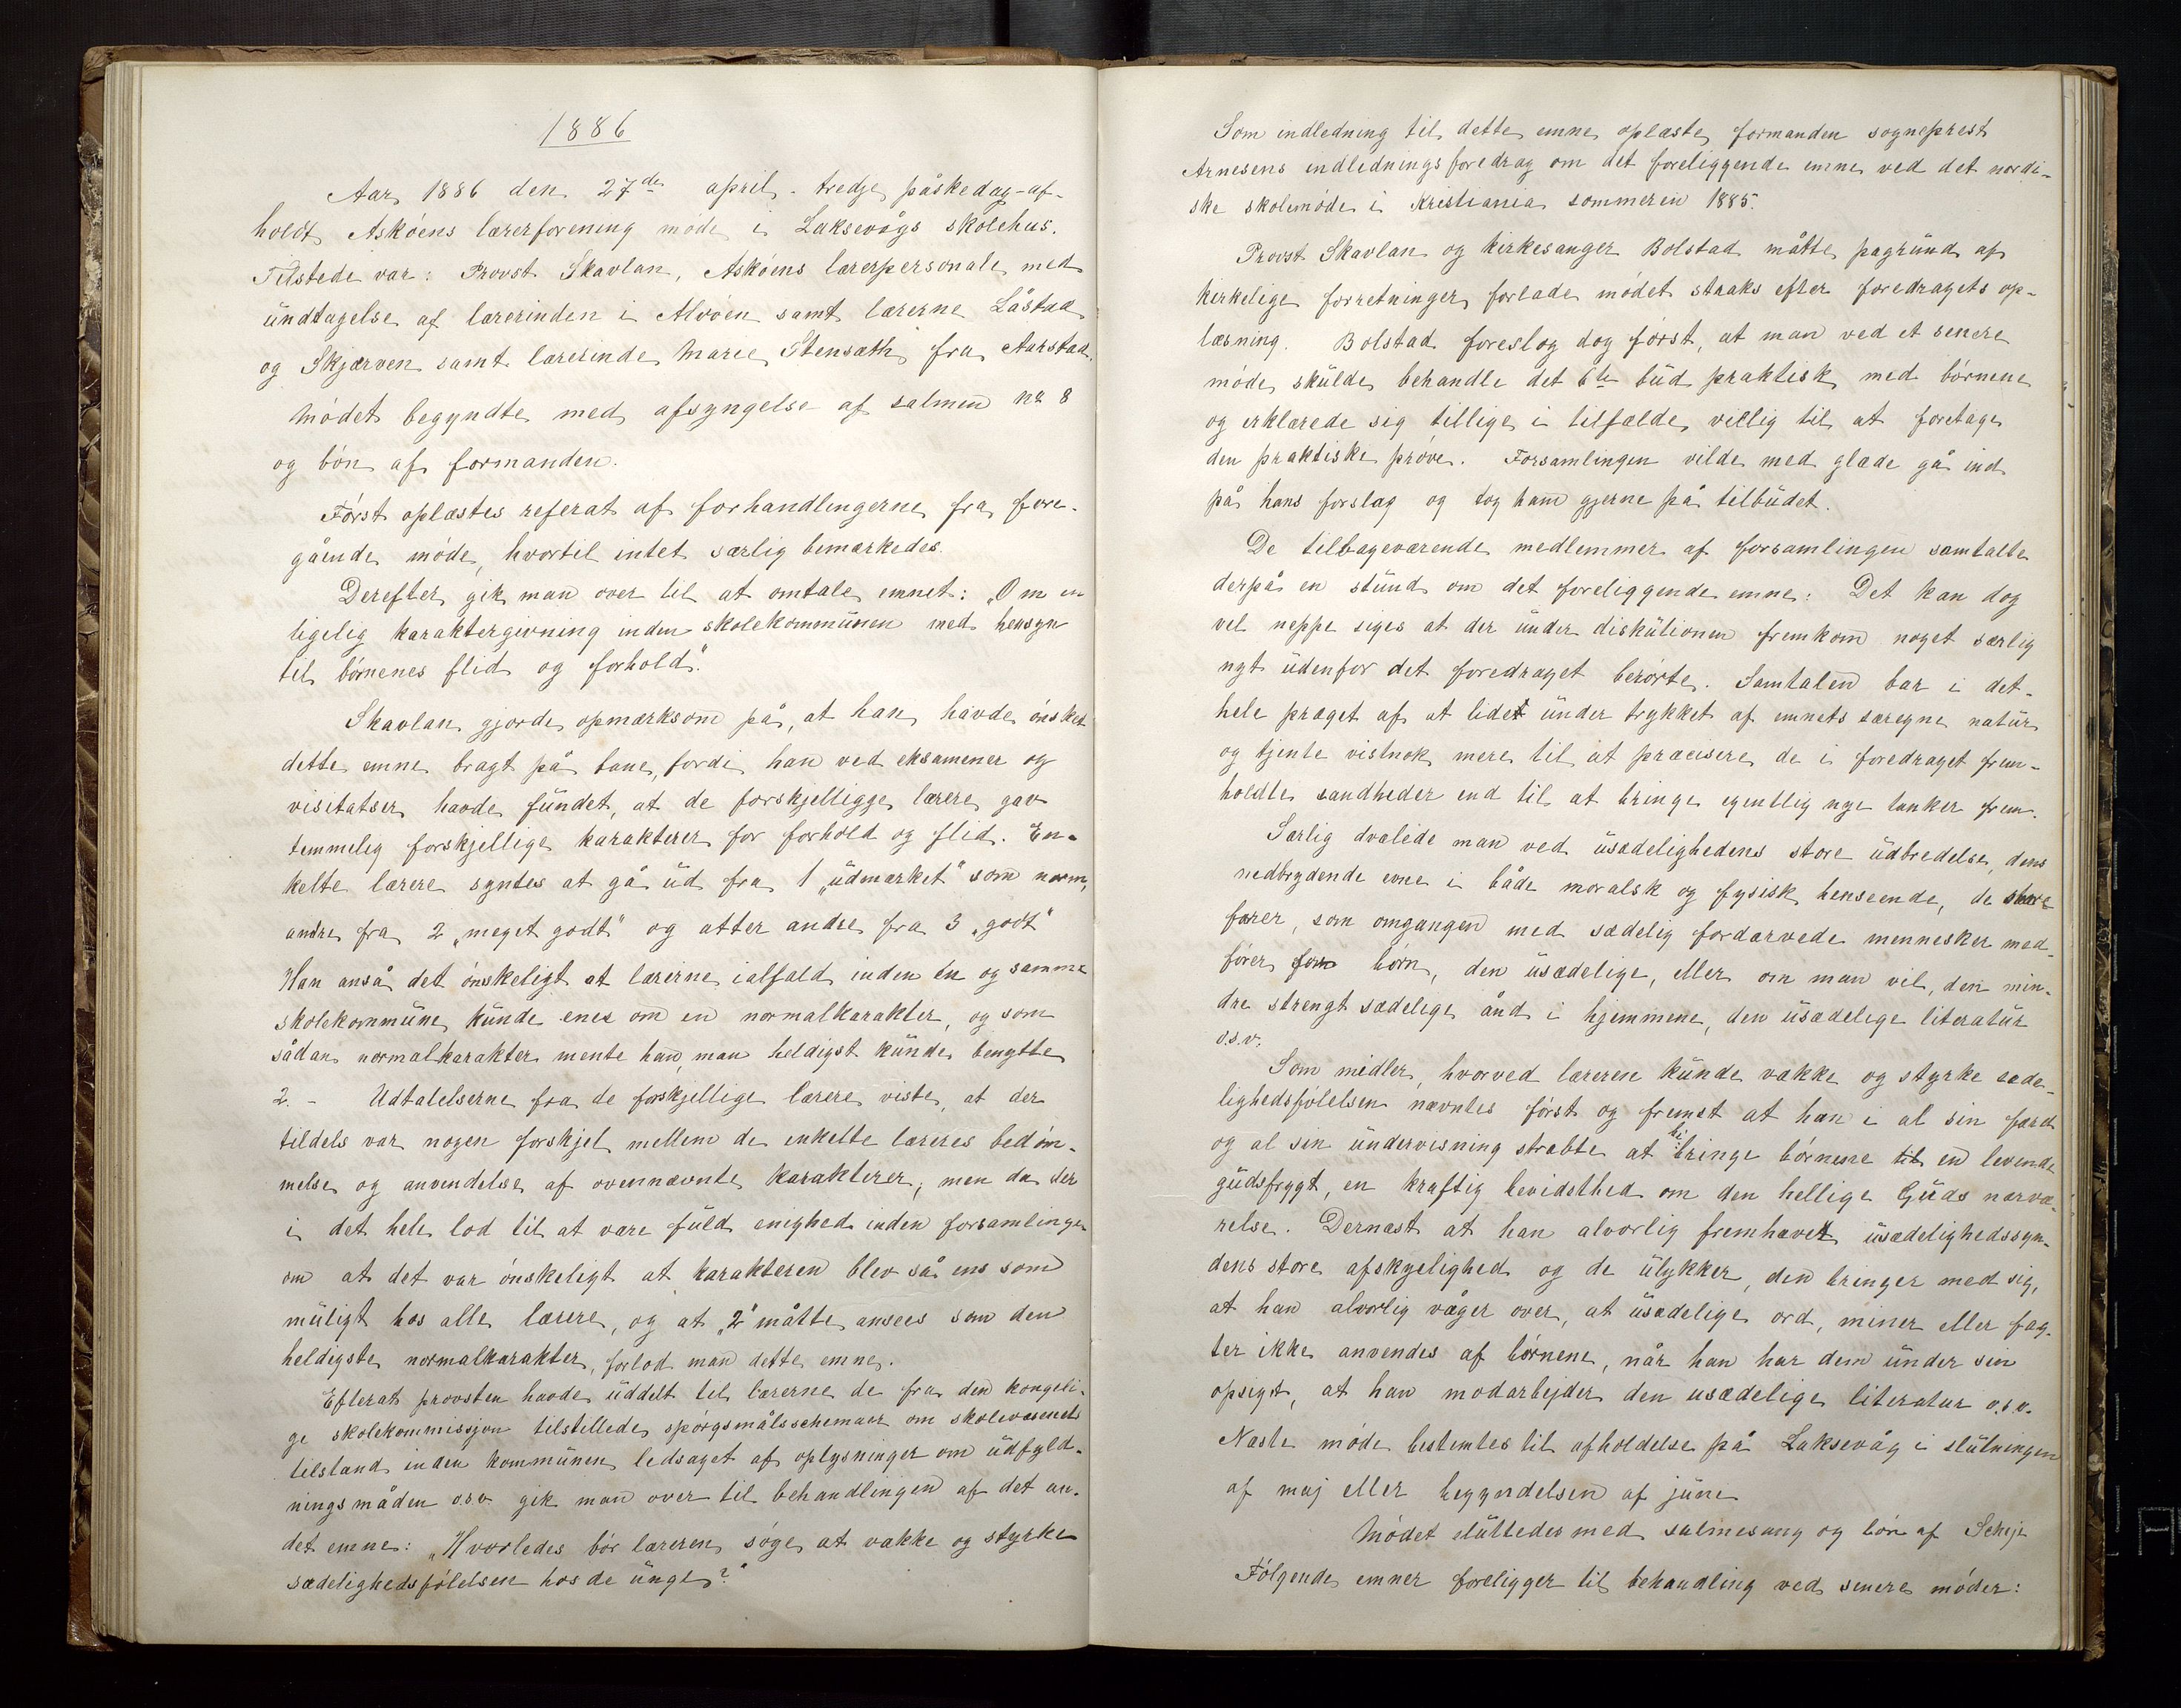 1886
Aar 1886 den 27de april - tredje påskedag - af-
holdt Askøens lærerforening møde i Laksevågs skolehus.
Tilstede var: Provst Skavlan, Askøens lærerpersonale med
undtagelse af lærerinden i Alvøen samt lærerne Låstad
og Skjærven samt lærerinde Marie Stensæth fra Aarstad.
Mødet begyndte med afsyngelse af salmen no 8
og bøn af formanden.
Først oplæstes referat af forhandlingerne fra fore-
gående møde, hvortil intet særlig bemærkedes.
Derefter gik man over til at omtale emnet: "Om en
ligelig karaktergivning inden skolekommunen med hensyn
til børnenes flid og forhold."
Skavlan gjorde opmærksom på, at han havde ønsket
dette emne bragt på bane, fordi han ved eksamener og
visitatser havde fundet, at de forskjelligge lærere gav
temmelig forskjellige karakterer for forhold og flid. En-
kelte lærere syntes at gå ud fra 1 "udmærket" som norm,
andre fra 2 "meget godt" og atter andre fra 3 "godt"
Han anså det ønskeligt at lærerne ialfald inden én og samme
skolekommune kunde enes om en normalkarakter, og som
sådan normalkarakter mente han, man heldigst kunde benytte
2. - Udtalelserne fra de forskjellige lærere viste, at der
tildels var nogen forskjel mellem de enkelte læreres bedøm-
melse og anvendelse af ovennævnte karakterer; men da der
i det hele lod til at være fuld enighed inden forsamlingen
om at det var ønskeligt at karakteren blev så ens som
muligt hos alle lærere, og at "2" måtte ansees som den
heldigste normalkarakter, forlod man dette emne.
Efterat provsten havde uddelt til lærerne de fra den kongeli-
ge skolekommissjon tilstillede spørgsmålsschemaer om skolevæsenets
tilstand inden kommunen ledsaget af oplysninger om udfyld-
ningsmåden o.s.v. gik man over til behandlingen af det an-
det emne: "Hvorledes bør læreren søge at vække og styrke
sædelighedsfølelsen hos de unge?"
Som indledning til dette emne oplæste formanden sogneprest
Arnesens indledningsforedrag om det foreliggende emne ved det nordi-
ske skolemøde i Kristiania sommeren 1885.
Provst Skavlan og kirkesanger Bolstad måtte pagrund af
kirkelige forretninger forlade mødet straks efter foredragets op-
læsning. Bolstad foreslog dog først, at man ved et senere
møde skulde behandle det 6te bud praktisk med børnene
og erklærede sig tillige i tilfælde villig til at foretage
den praktiske prøve. Forsamlingen vilde med glæde gå ind
på hans forslag og tog ham gjerne på tilbudet.
De tilbageværende medlemmer af forsamlingen samtalte
derpå en stund om det foreliggende emne: Det kan dog
vel neppe siges at der under diskutionen fremkom noget særlig
nyt udenfor det foredraget berørte. Samtalen bar i det-
hele præget af at lide under trykket af emnets særegne natur
og tjente vistnok mere til at præcisere de i foredraget frem-
holdte sandheder end til at bringe egentlig nye tanker frem.
Særlig dvalede man ved usædelighedens store udbredelse, dens
nedbrydende evne i både moralsk og fysisk henseende, de store
farer, som omgangen med sædelig fordærvede mennesker med-
fører for børn, den usædelige, eller om man vil, den min-
dre strengt sædelige ånd i hjemmene, den usædelige literatur
o.s.v.
Som midler, hvorved læreren kunde vække og styrke sæde-
lighedsfølelsen nævntes først og fremst at han i al sin færd
og al sin undervisning stræbte at bibringe børnene en levende
gudsfrygt, en kraftig bevidsthed om den hellige Guds nærvæ-
relse. Dernæst at han alvorlig fremhæver usædelighedssyn-
dens store afskyelighed og de ulykker, den bringer med sig,
at han alvorlig våger over, at usædelige ord, miner eller fag-
ter ikke anvendes af børnene, når han har dem under sin
opsigt, at han modarbejder den usædelige literatur o.s.v.
Næste møde bestemtes til afholdelse på Laksevåg i slutningen
af maj eller begyndelsen af june
Mødet sluttedes med salmesang og bøn af Scheje
Følgende emner foreligger til behandling ved senere møder: